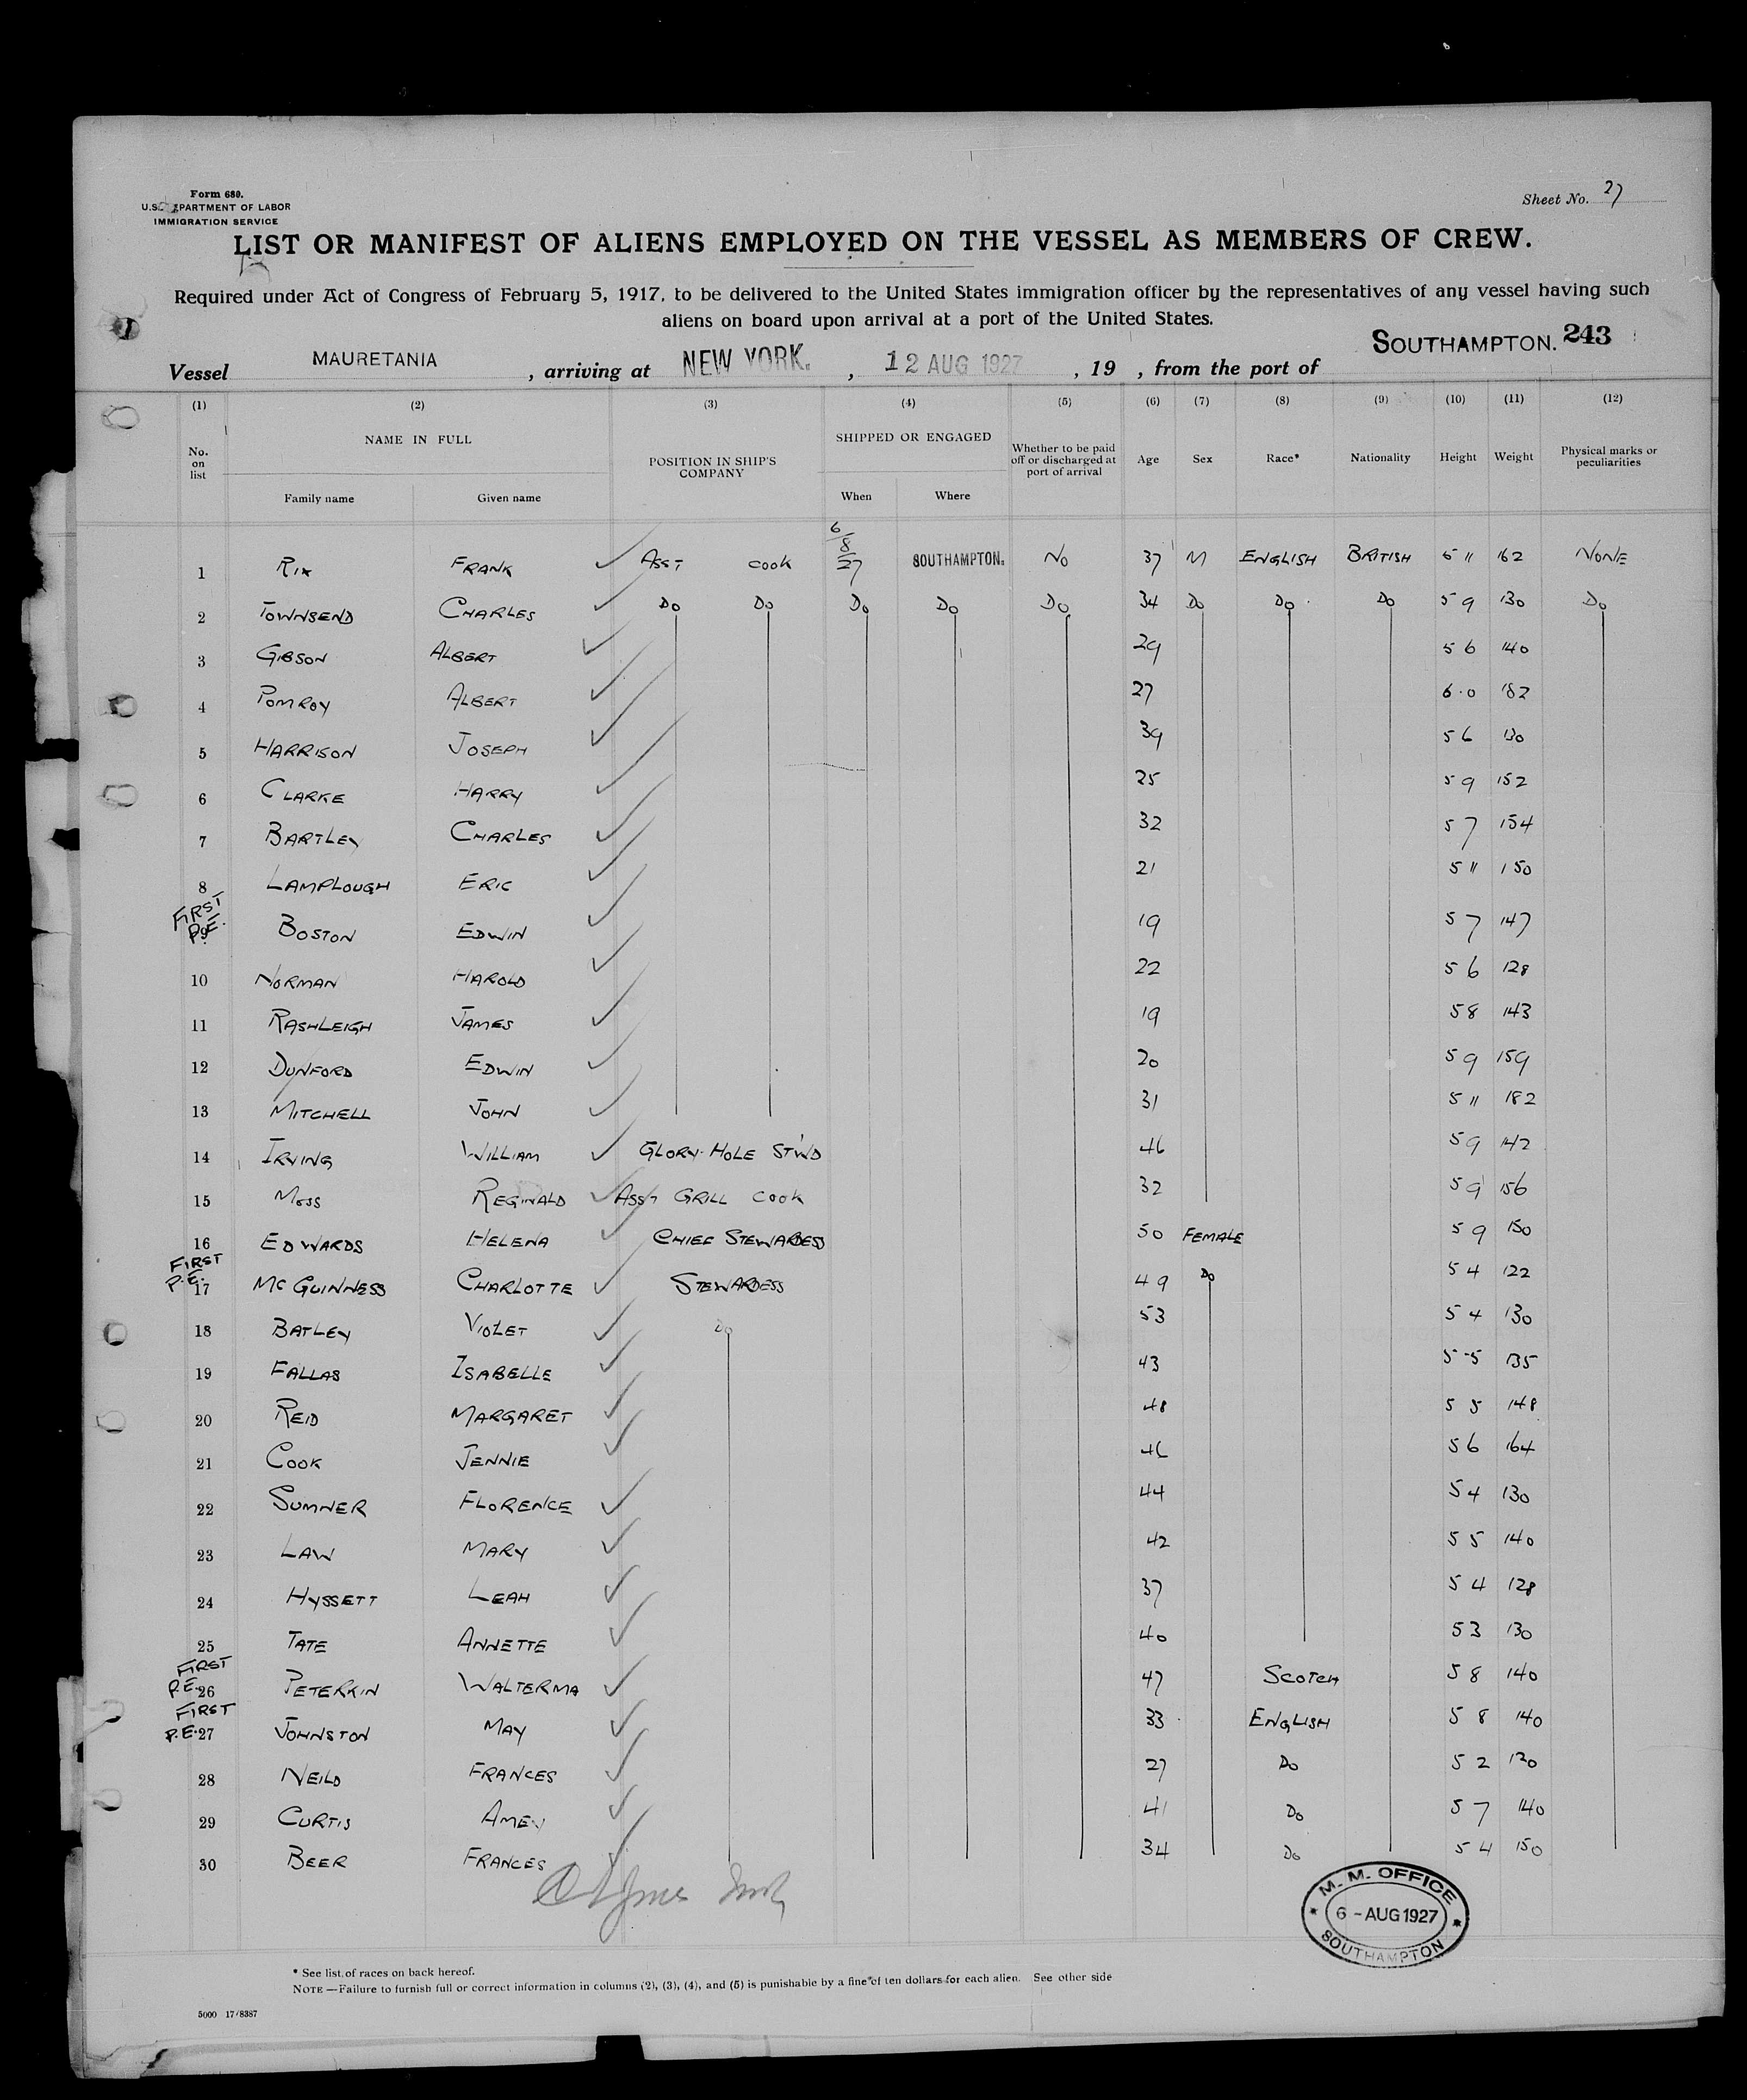 Form 680.
U.S. DEPARTMENT OF LABOR
IMMIGRATION SERVICE
Sheet No. 27
LIST OR MANIFEST OF ALIENS EMPLOYED ON THE VESSEL AS MEMBERS OF CREW.
Required under Act of Congress of February 5, 1917, to be delivered to the United States immigration officer by the representatives of any vessel having such
aliens on board upon arrival at a port of the United States.
Vessel MAURETANIA , arriving at NEW YORK. , 12 AUG 1927 , 19 , from the port of SOUTHAMPTON. 243
(1) (2) (3) (4) (5) (6) (7) (8) (9) (10) (11) (12)
No. on list NAME IN FULL POSITION IN SHIP'S COMPANY SHIPPED OR ENGAGED Whether to be paid off or discharged at port of arrival Age Sex Race* Nationality Height Weight Physical marks or peculiarities
Family name Given name When Where
1 RIX FRANK ASST COOK 6/8/27 SOUTHAMPTON. NO 37 M ENGLISH BRITISH 5 11 162 NONE
2 TOWNSEND CHARLES DO DO DO DO DO 34 DO DO DO 5 9 130 DO
3 GIBSON ALBERT 29 5 6 140
4 POMROY ALBERT 27 6.0 182
5 HARRISON JOSEPH 39 5 6 130
6 CLARKE HARRY 25 5 9 152
7 BARTLEY CHARLES 32 5 7 154
8 LAMPLOUGH ERIC 21 5 11 150
FIRST P.E. 9 BOSTON EDWIN 19 5 7 147
10 NORMAN HAROLD 22 5 6 128
11 RASHLEIGH JAMES 19 5 8 143
12 DUNFORD EDWIN 20 5 9 159
13 MITCHELL JOHN 31 5 11 182
14 IRVING WILLIAM GLORY-HOLE ST'WD 46 5 9 142
15 MOSS REGINALD ASST GRILL COOK 32 5 9 156
16 EDWARDS HELENA CHIEF STEWARDESS 50 FEMALE 5 9 150
FIRST P.E. 17 MC GUINNESS CHARLOTTE STEWARDESS 49 DO 5 4 122
18 BATLEY VIOLET DO 53 5 4 130
19 FALLAS ISABELLE 43 5 5 135
20 REID MARGARET 48 5 5 148
21 COOK JENNIE 46 5 6 164
22 SUMNER FLORENCE 44 5 4 130
23 LAW MARY 42 5 5 140
24 HYSSETT LEAH 37 5 4 128
25 TATE ANNETTE 40 5 3 130
FIRST P.E. 26 PETERKIN WALTERMA 47 SCOTCH 5 8 140
FIRST P.E. 27 JOHNSTON MAY 33 ENGLISH 5 8 140
28 NEILD FRANCES 27 DO 5 2 120
29 CURTIS AMEY 41 DO 5 7 140
30 BEER FRANCES 34 DO 5 4 150
M. M. OFFICE
6 - AUG 1927
SOUTHAMPTON
* See list of races on back hereof.
NOTE —Failure to furnish full or correct information in columns (2), (3), (4), and (5) is punishable by a fine of ten dollars for each alien. See other side
5000 17/8387